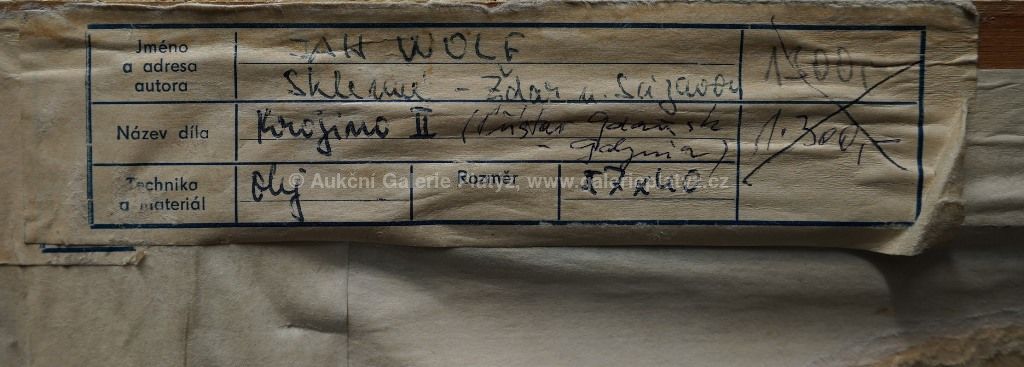 Jméno
a adresa
autora
JAN WOLF
Sklenné - Ždár n. Sázavou
1500,-
Název díla
Krajina II (Přístav Gdaňsk
- Gdynia)
1.300,-
Technika
a materiál
olej
Rozměr
57x40
© Aukční Galerie Platýz www.galerieplatyz.cz